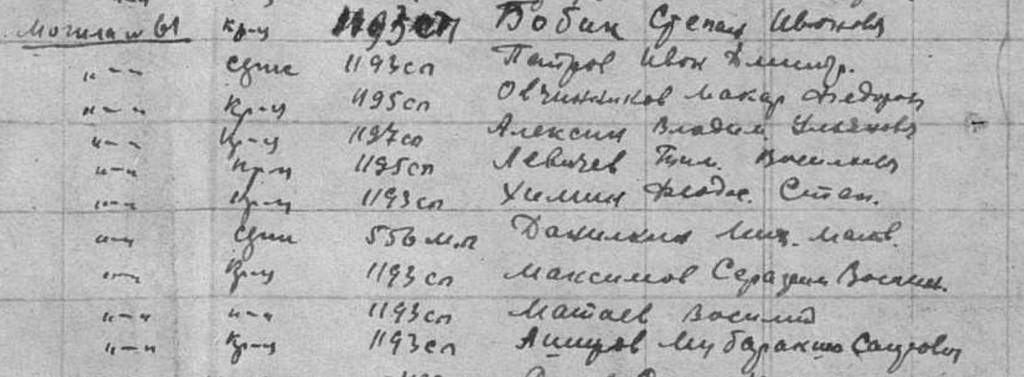 Могила № 61 кр-ц 1193 сп Бобик Степан Иванович
"-" сджс 1193 сп Петров Иван Дмитр.
"-" кр-ц 1195 сп Овчинников Макар Федоров
"-" кр-ц 1197 сп Алексин Владим. Ульянов
"-" кр-ц 1195 сп Левичев Василье
"-" кр-ц 1193 сп Химин Федос. Степ.
"-" сджс 556 м.п Данилкин Мих. Матв.
"-" кр-ц 1193 сп Максимов Серафим Васил.
"-" "-" 1193 сп Матаев Василий
"-" кр-ц 1193 сп Мубаракша